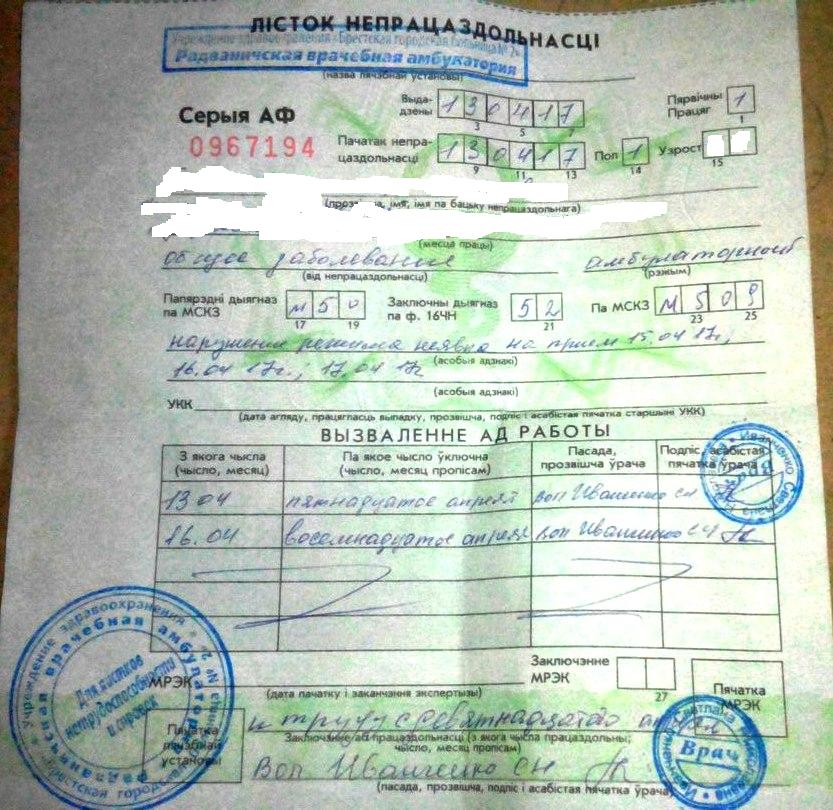 ЛІСТОК НЕПРАЦАЗДОЛЬНАСЦІ
Учреждение здравоохранения «Брестская городская больница № 2»
Радваничская врачебная амбулатория
(назва лячэбнай установы)
Серыя АФ
0967194
Выда-
дзены 1 3 0 4 1 7
3 5 7
Пярвічны 1
Працяг
1
Пачатак непра-
цаздольнасці 1 3 0 4 1 7
9 11 13
Пол 1
14
Узрост
15
імя, імя па бацьку непрацаздольнага)
(месца працы)
общее заболевание амбулаторный
(від непрацаздольнасці) (рэжым)
Папярэдні дыягназ
па МСКЗ М 5 0
17 19
Заключны дыягназ
па ф. 16ЧН 5 2
21
Па МСКЗ М 5 0 9
23 25
нарушение режима неявка на прием 15.04 17г.,
(асобыя адзнакі)
16.04 17г., 17.04 17г
(асобыя адзнакі)
УКК
(дата агляду, працягласць выпадку, прозвішча, подпіс і асабістая пячатка старшыні УКК)
ВЫЗВАЛЕННЕ АД РАБОТЫ
З якога чысла
(чысло, месяц)
Па якое чысло ўключна
(чысло, месяц пропісам)
Пасада,
прозвішча ўрача
Подпіс, асабістая
пячатка ўрача
13 04 пятнадцатое апреля Воп Иванченко СН
16.04 восемнадцатое апреля Воп Иванченко СН
МРЭК
(дата пачатку і заканчэння экспертызы)
Заключэнне
МРЭК
27
Пячатка
МРЭК
к труду с девятнадцатого апреля
Заключэнне аб працаздольнасці (з якога чысла працаздольны;
чысло, месяц пропісам)
Пячатка
лячэбнай
установы
Воп Иванченко СН
(пасада, прозвішча, подпіс і асабістая пячатка ўрача)
Учреждение здравоохранения
Радваничская врачебная амбулатория
Для листков
нетрудоспособности
и справок
Иванченко Светлана
Врач
Иванченко Светлана Николаевна
Врач